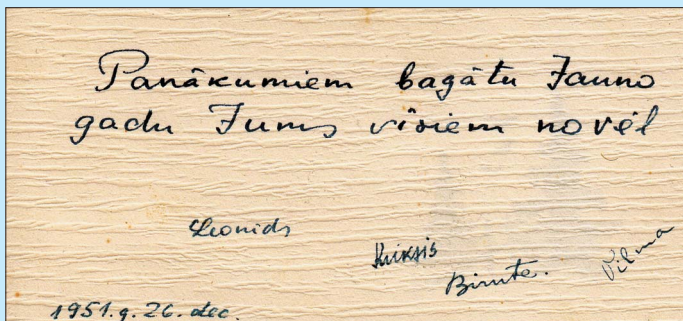 Panākumiem bagātu Jauno
gadu Jums visiem novēl
Leonids
Biruta.
Vilma
1951.g. 26. dec.